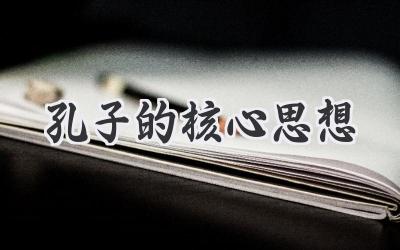 孔子的核心思想